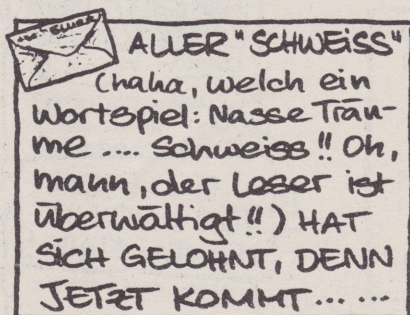 ALLER "SCHWEISS"
(haha, welch ein
Wortspiel: Nasse Träu-
me .... Schweiss!! Oh,
mann, der Leser ist
überwältigt!!) HAT
SICH GELOHNT, DENN
JETZT KOMMT......